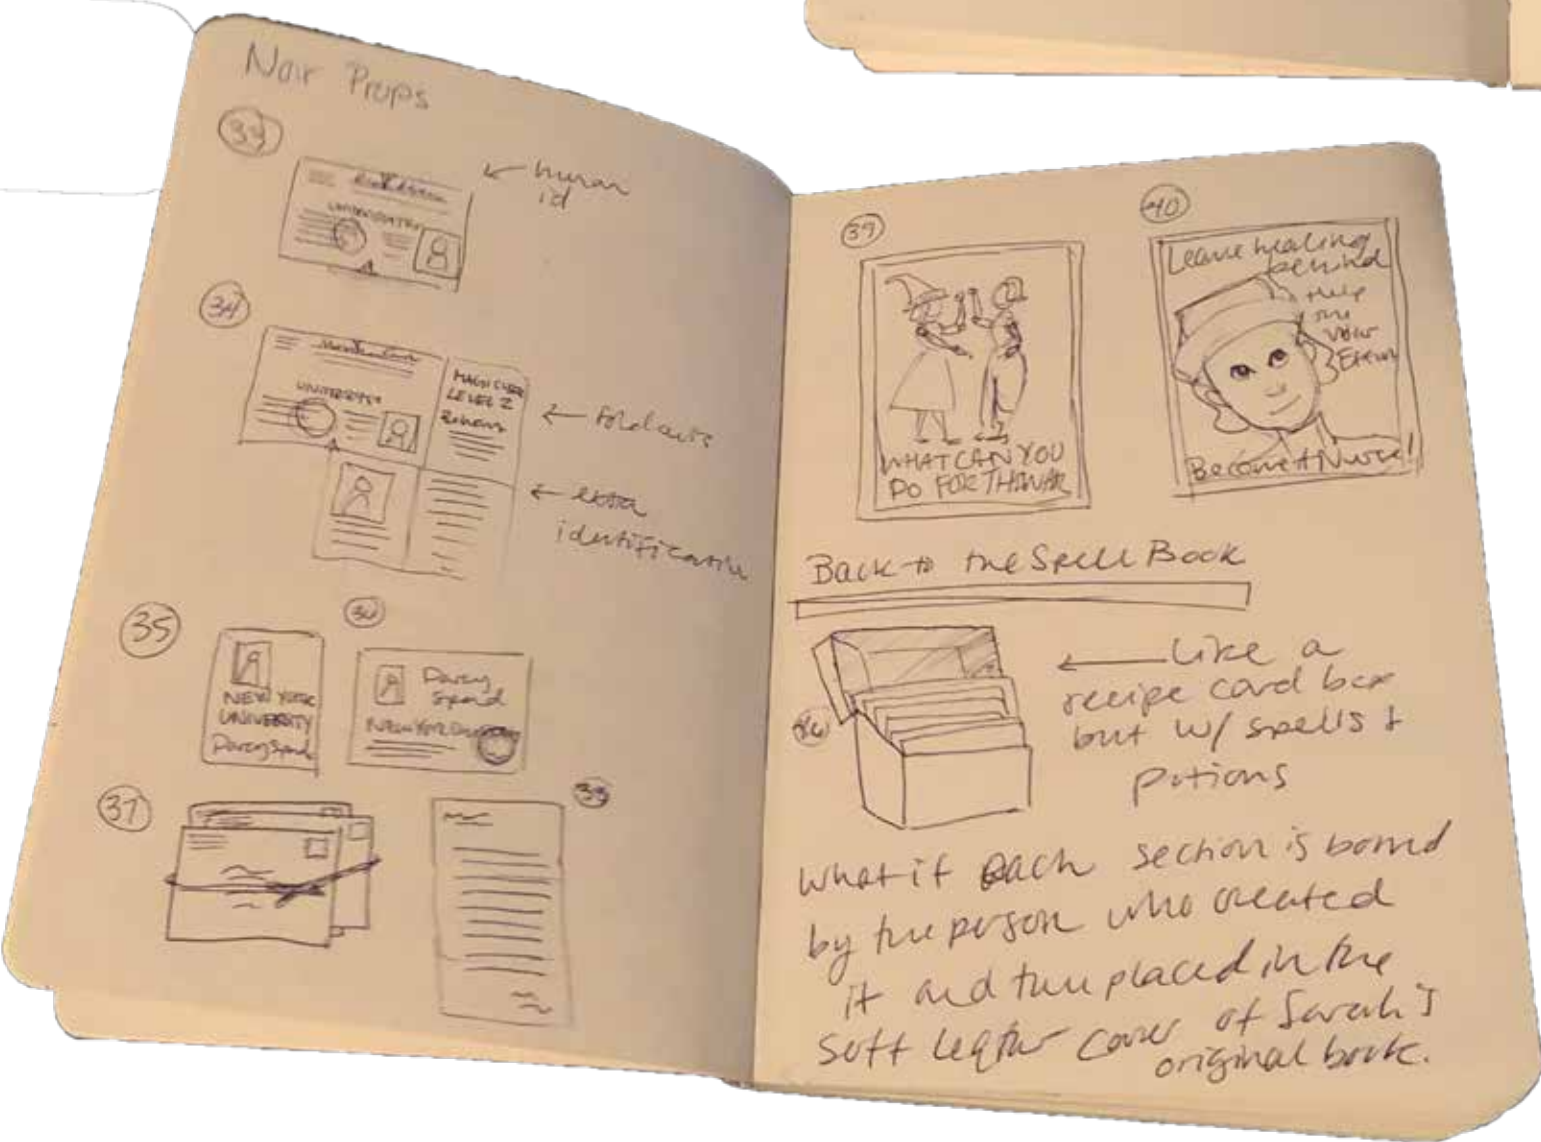 Noir Props
33
← human
id
34
UNIVERSITY
LEVEL 2
← fold outs
← extra
identification
35
36
NEW YORK
UNIVERSITY
Darcy
37
38
39
WHAT CAN YOU
DO FOR
40
Leave healing
behind
Help
Become A Nurse!
Back to the Spell Book
← Like a
recipe card box
but w/ spells +
potions
What if each section is bound
by the person who created
it and then placed in the
soft leather cover of Sarah's
original book.